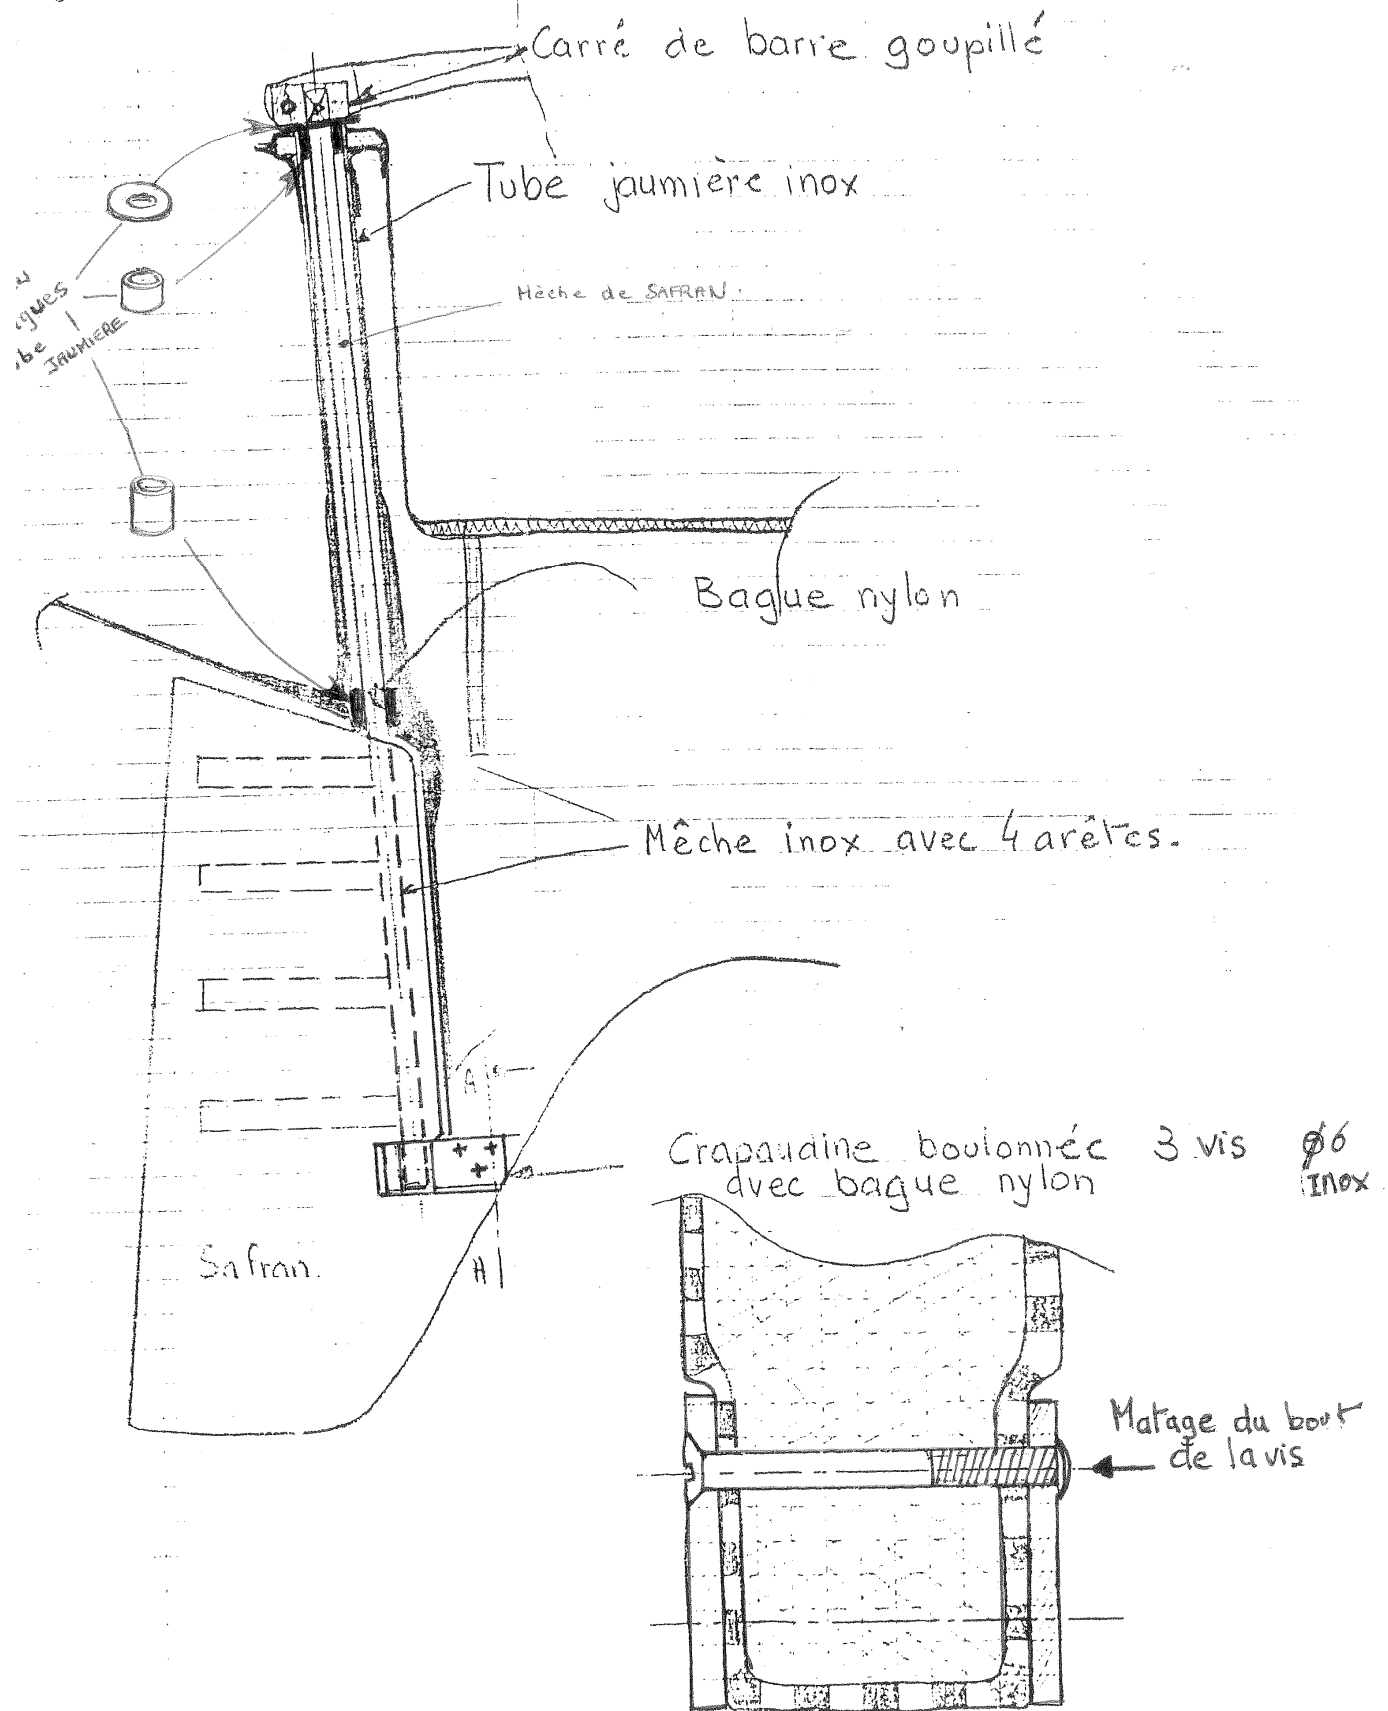 Carré de barre goupillé
Tube jaumière inox
Mèche de SAFRAN
JAUMIERE
Bague nylon
Mêche inox avec 4 arêtes.
A
Crapaudine boulonnée 3 vis ø6
avec bague nylon Inox
Safran.
A
Matage du bout
de la vis